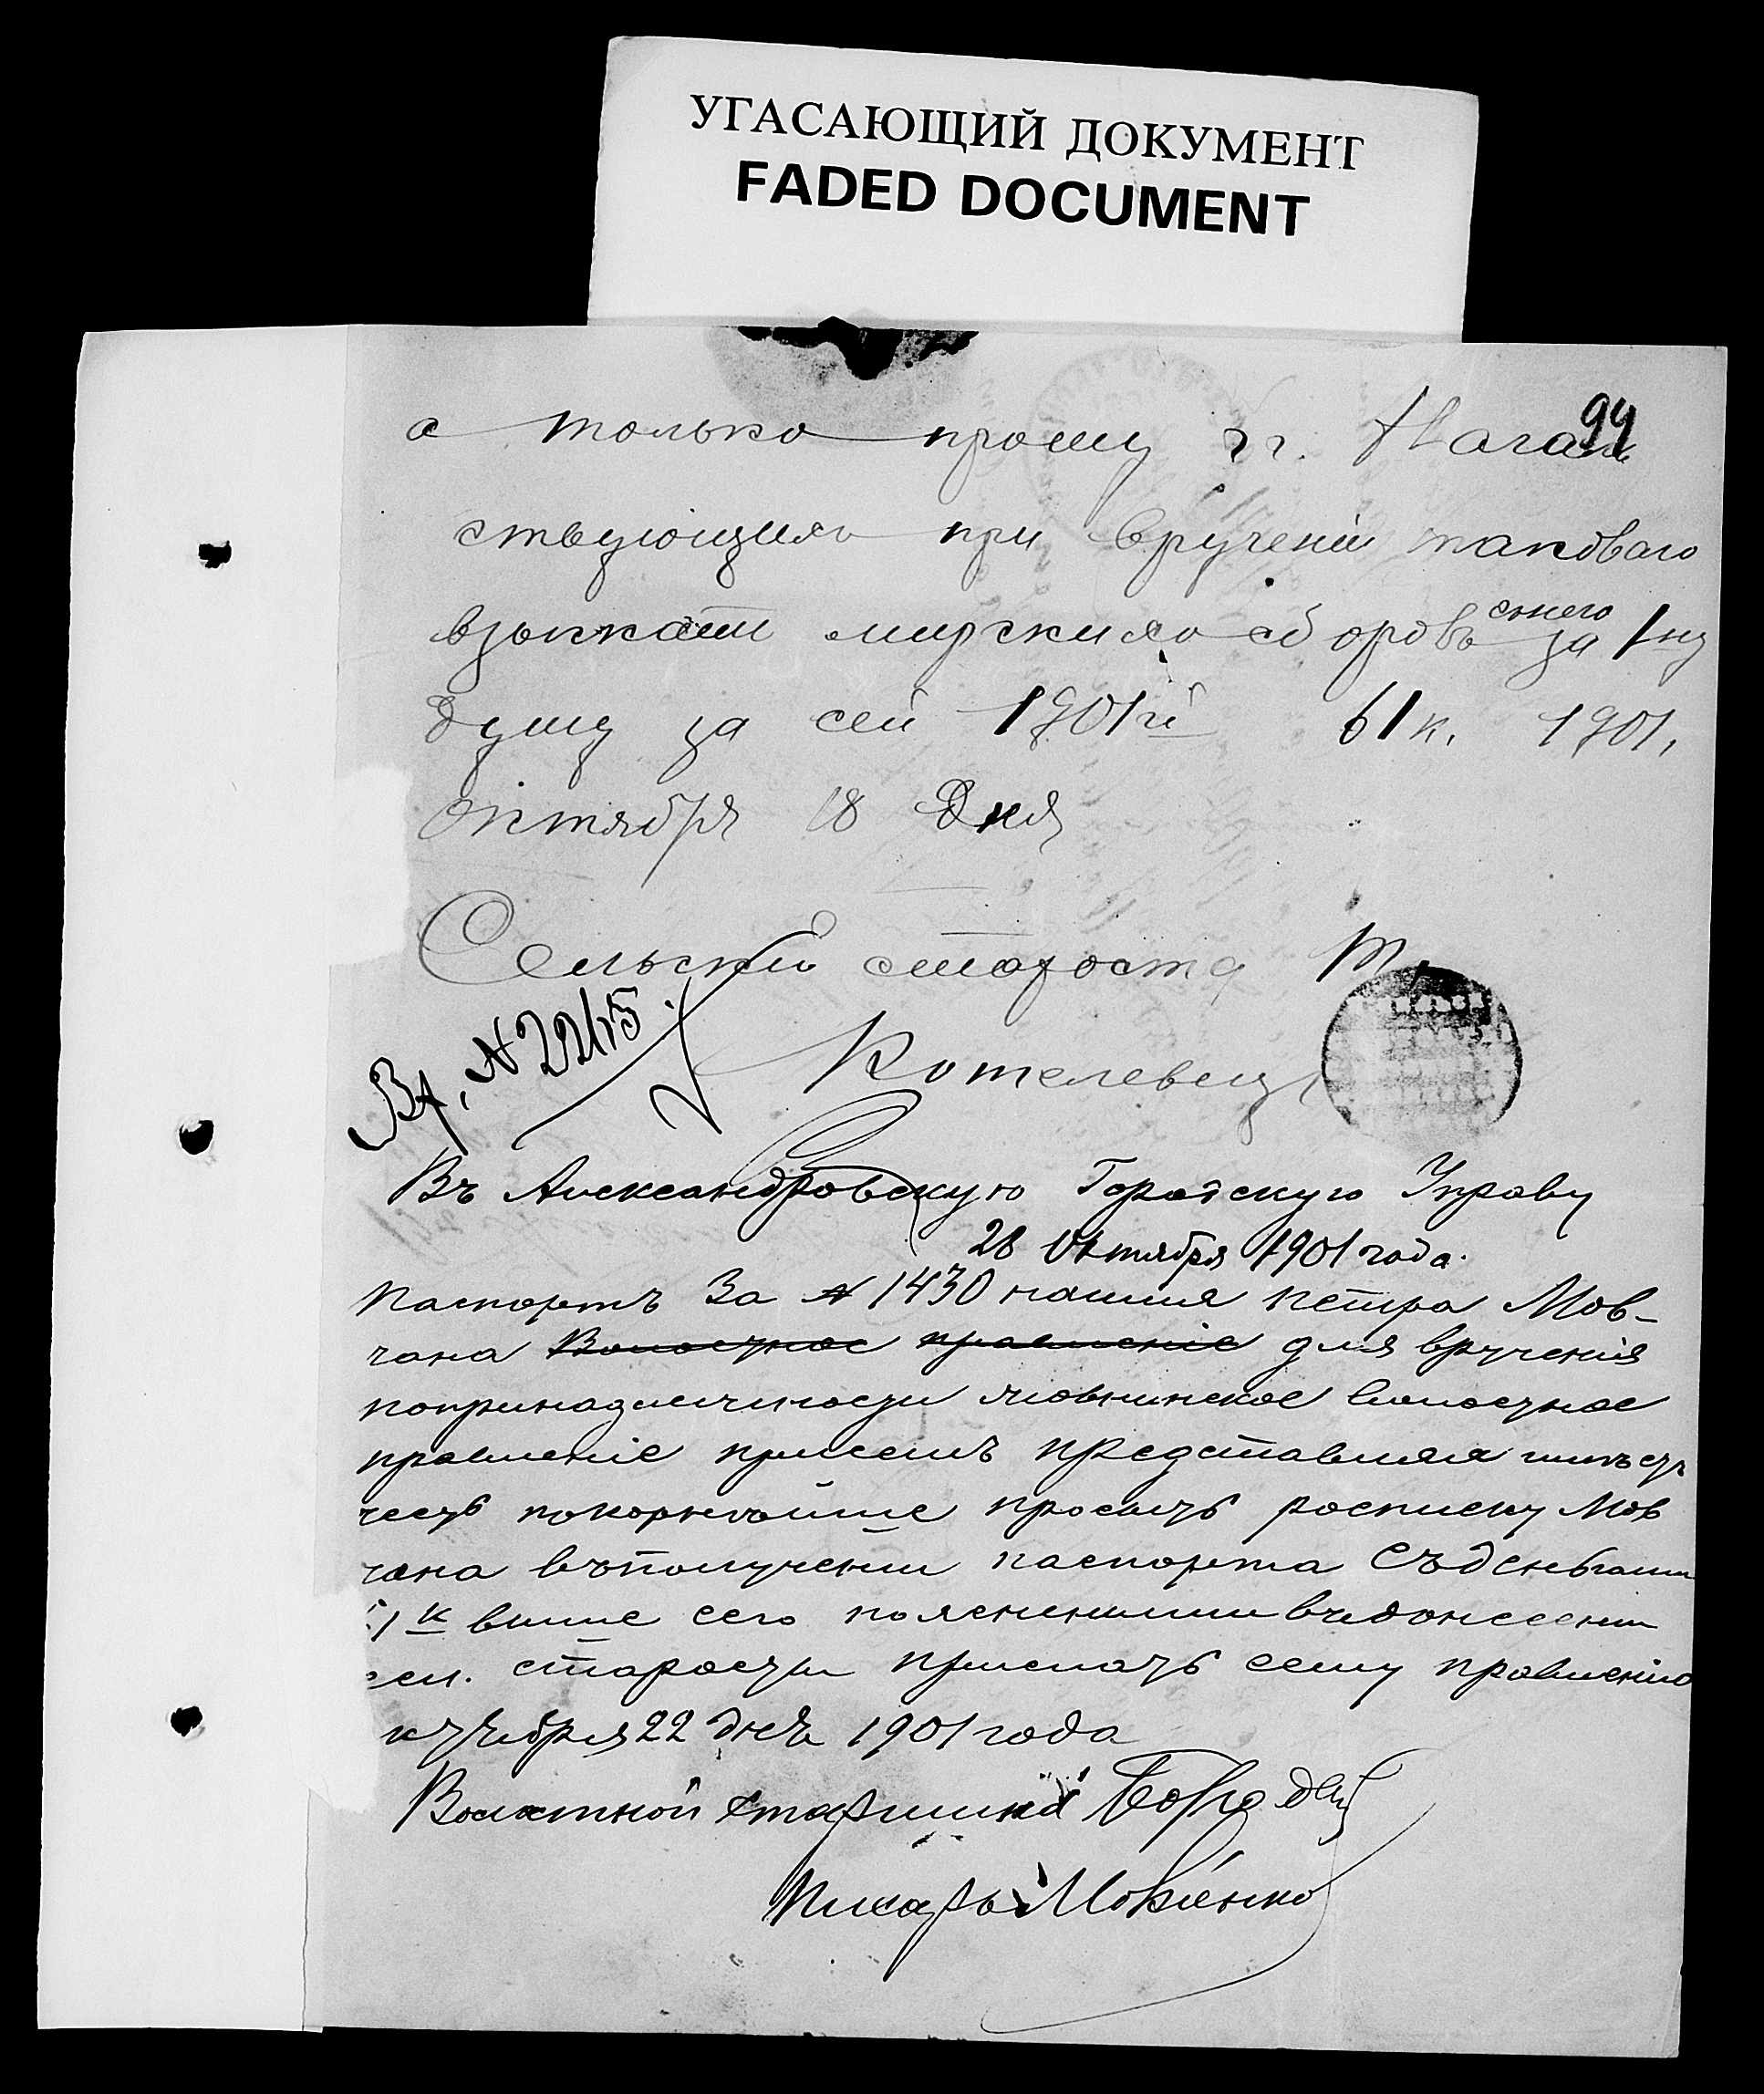 УГАСАЮЩИЙ ДОКУМЕНТ
FADED DOCUMENT
94
а только прошу гг. Началь
ствующихъ при врученіи таковаго
взыскать мирскихъ сборовъ снего за 1ну
душу за сей 1901й 61 к. 1901.
Октября 18 Дня
Сельский староста
Котелевец
Вх. № 2245
Въ Александровскую Городскую Управу
28 Октября 1901 года.
Паспортъ За № 1430 на имя петра Мов-
чана Волостное правление для врученія
попринадлежности волостное
правленіе присемъ представляя имѣетъ
честь покорнейше просить росписку Мов
чана въполучении паспорта Съденьгами
к више сего поясненными вдонесении
сел. старосты прислать сему правленію
ктября 22 дня 1901 года
Волостной старшина
Писарь